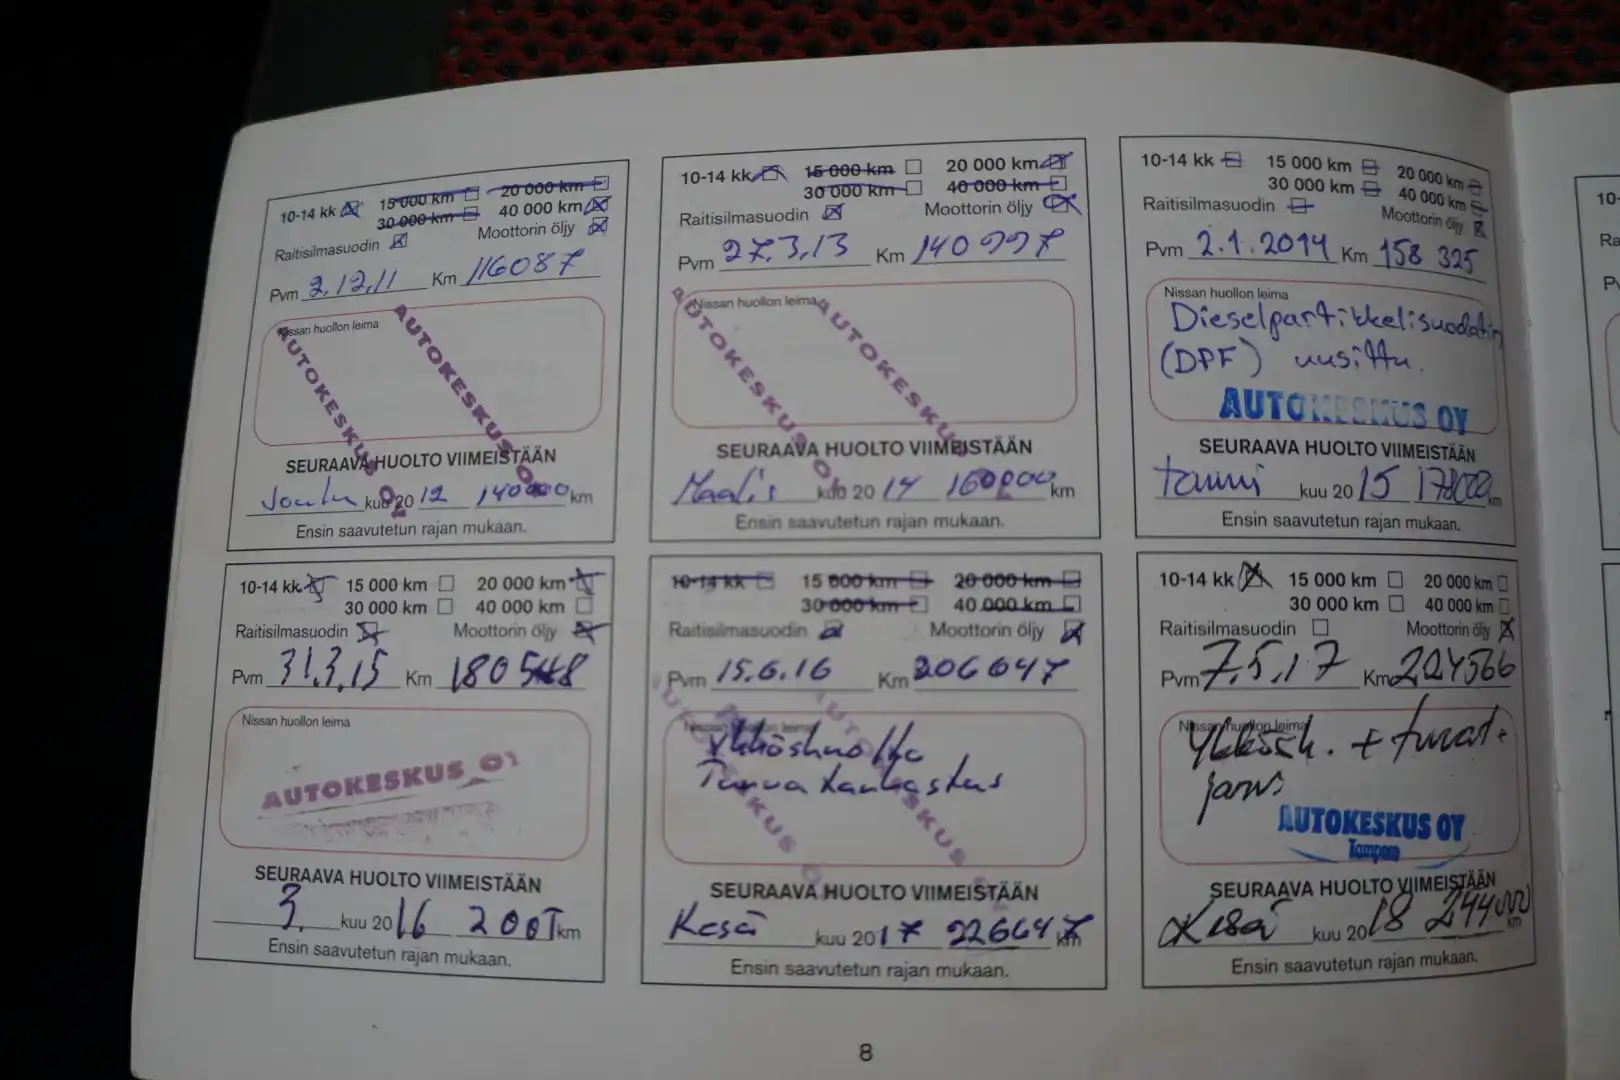 10-14 kk 15 000 km 20 000 km
30 000 km 40 000 km
Raitisilmasuodin Moottorin öljy
Pvm 2.12.11 Km 116087
Nissan huollon leima
AUTOKESKUS OY
AUTOKESKUS OY
SEURAAVA HUOLTO VIIMEISTÄÄN
Joulu kuu 2012 140000 km
Ensin saavutetun rajan mukaan.
10-14 kk 15 000 km 20 000 km
30 000 km 40 000 km
Raitisilmasuodin Moottorin öljy
Pvm 27.3.13 Km 140997
Nissan huollon leima
AUTOKESKUS OY
AUTOKESKUS
SEURAAVA HUOLTO VIIMEISTÄÄN
Maalis kuu 2014 160000 km
Ensin saavutetun rajan mukaan.
10-14 kk 15 000 km 20 000 km
30 000 km 40 000 km
Raitisilmasuodin Moottorin öljy
Pvm 2.1.2014 Km 158 325
Nissan huollon leima
Dieselpartikkelisuodatin
(DPF) uusittu.
AUTOKESKUS OY
SEURAAVA HUOLTO VIIMEISTÄÄN
tammi kuu 2015 178000 km
Ensin saavutetun rajan mukaan.
10-14 kk 15 000 km 20 000 km
30 000 km 40 000 km
Raitisilmasuodin Moottorin öljy
Pvm 31.3.15 Km 180548
Nissan huollon leima
AUTOKESKUS OY
SEURAAVA HUOLTO VIIMEISTÄÄN
3. kuu 2016 200T km
Ensin saavutetun rajan mukaan.
10-14 kk 15 000 km 20 000 km
30 000 km 40 000 km
Raitisilmasuodin Moottorin öljy
Pvm 15.6.16 Km 206647
Nissan huollon leima
Ykköshuolto
Turvatarkastus
AUTOKESKUS O
AUTOKESKUS
SEURAAVA HUOLTO VIIMEISTÄÄN
Kesä kuu 2017 226647 km
Ensin saavutetun rajan mukaan.
10-14 kk 15 000 km 20 000 km
30 000 km 40 000 km
Raitisilmasuodin Moottorin öljy
Pvm 7.5.17 Km 224566
Nissan huollon leima
Ykkösh. + turvat.
AUTOKESKUS OY
Tampere
SEURAAVA HUOLTO VIIMEISTÄÄN
Kesä kuu 2018 244000 km
Ensin saavutetun rajan mukaan.
8